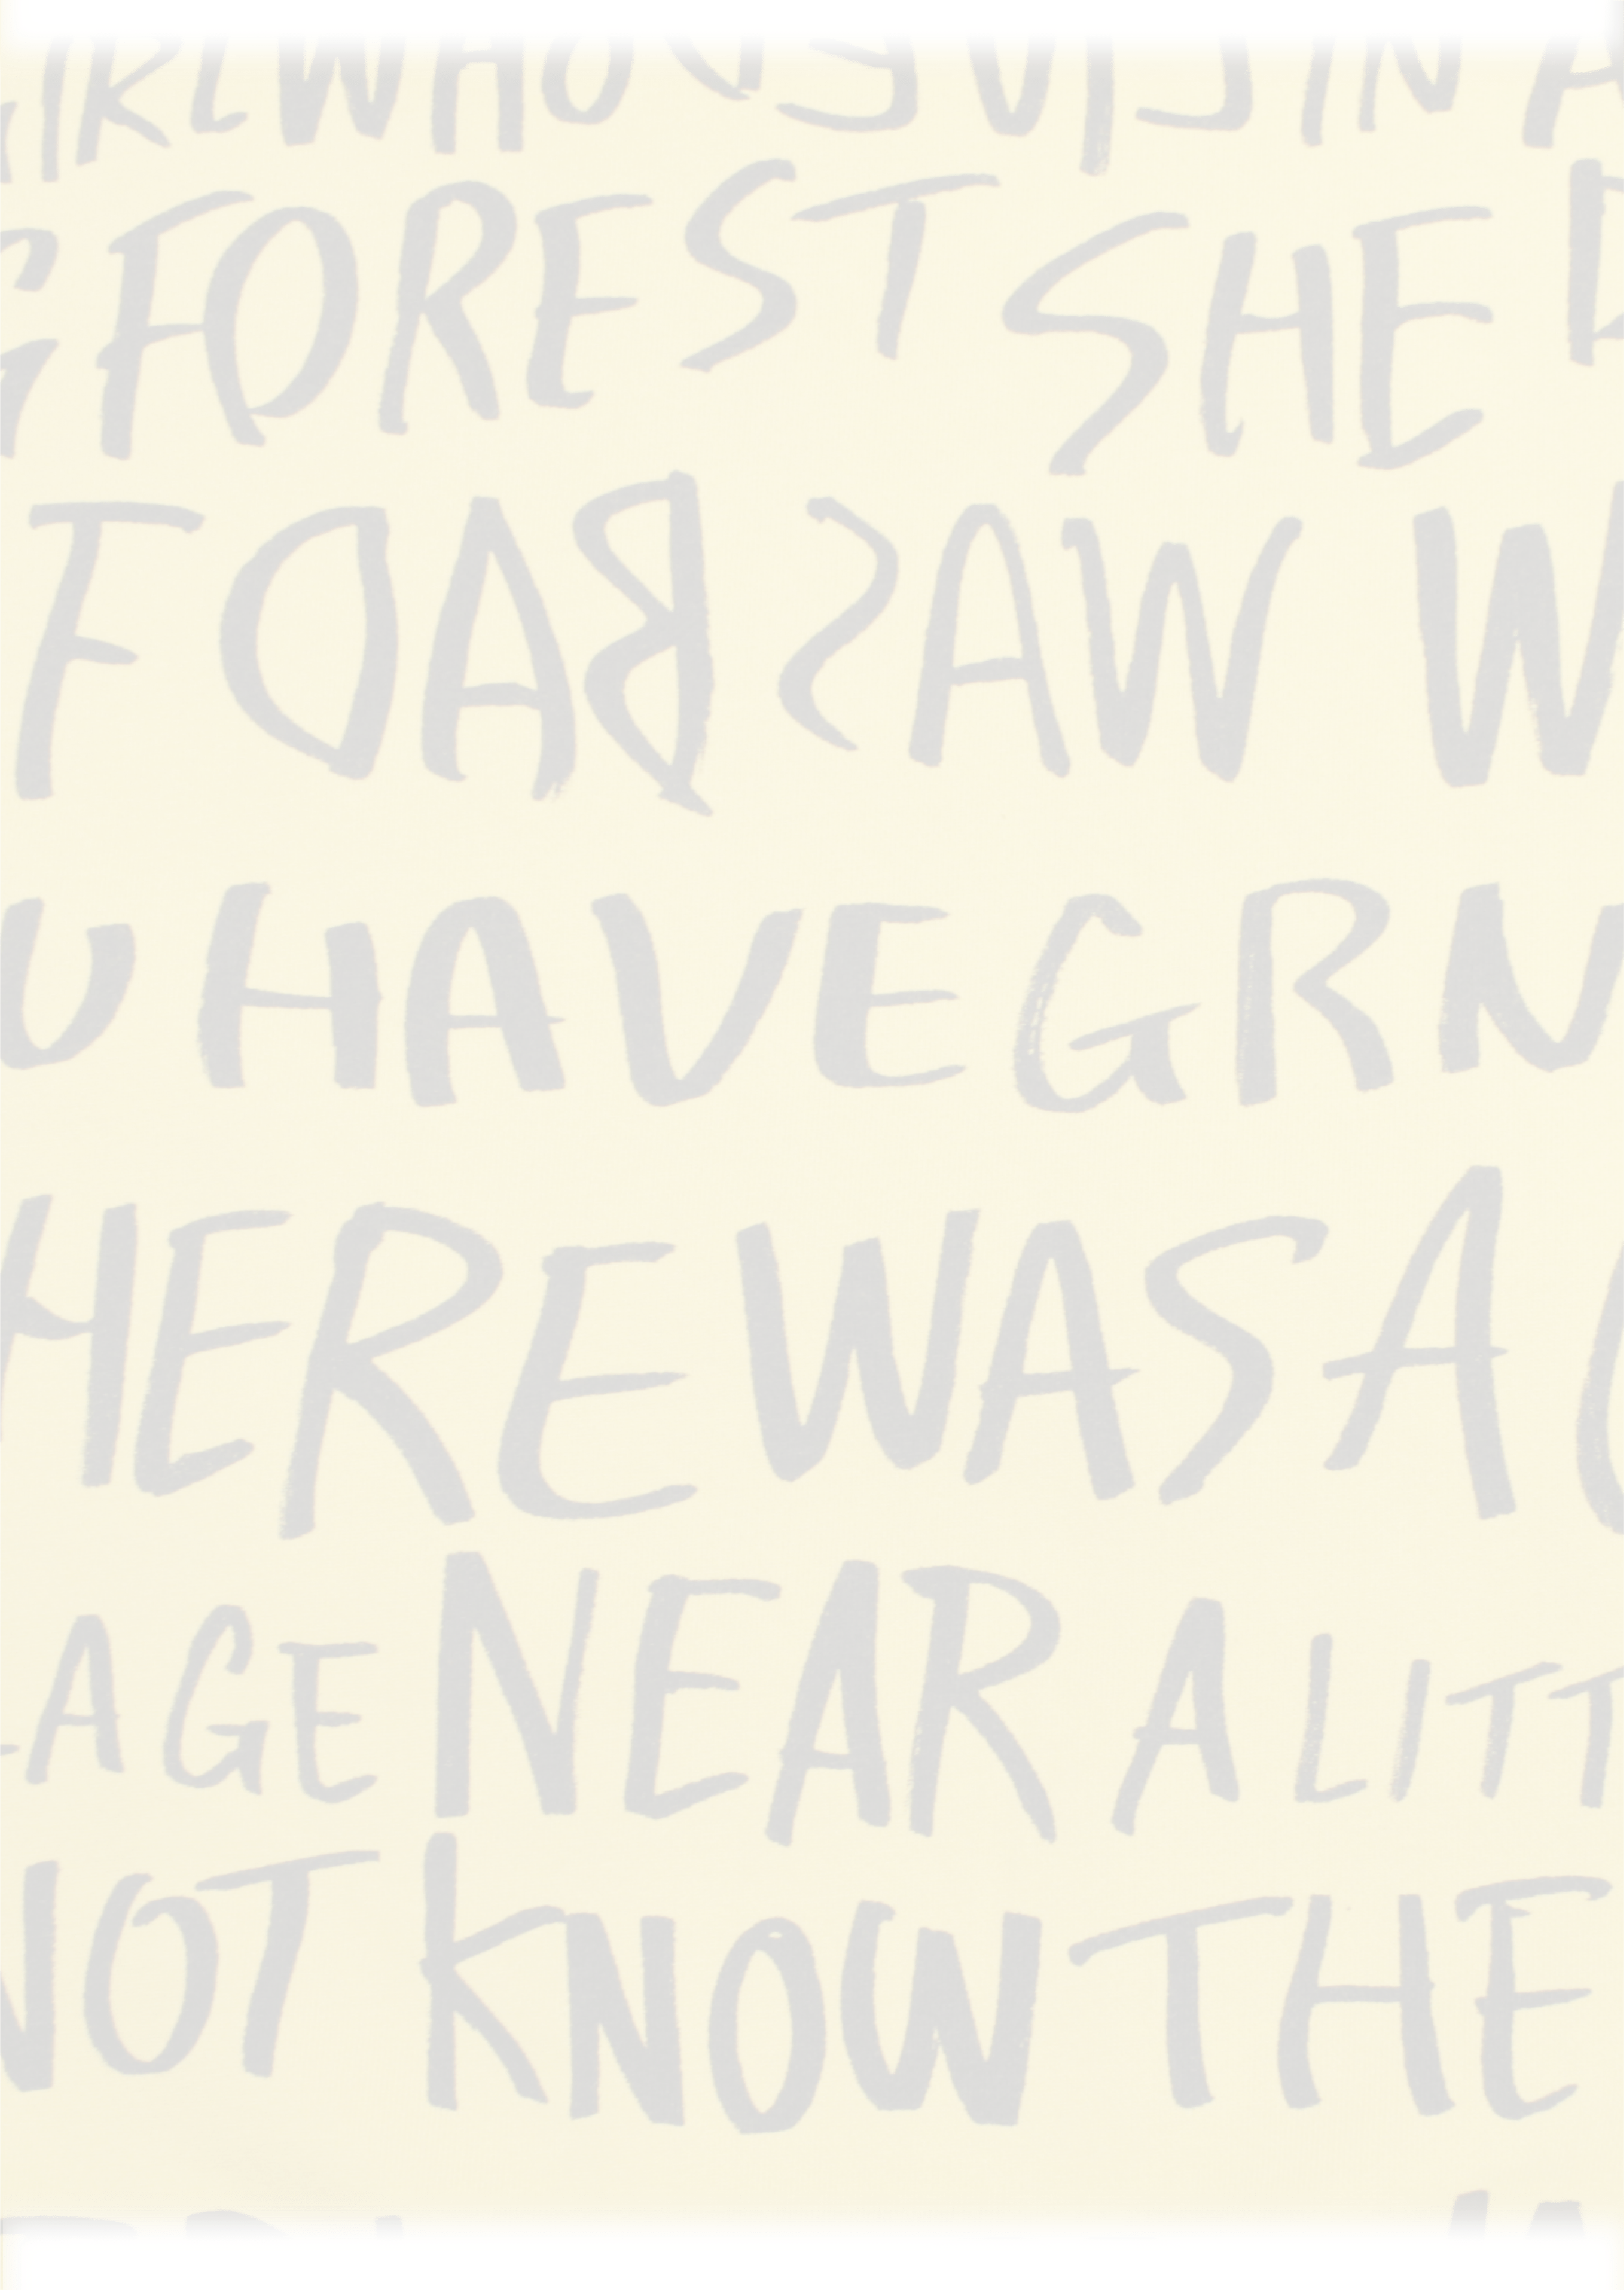 IRLWHO IN A
G FOREST SHE
F DAB SAW W
U HAVE GRN
HERE WAS A
AGE NEAR A LITT
NOT KNOW THE